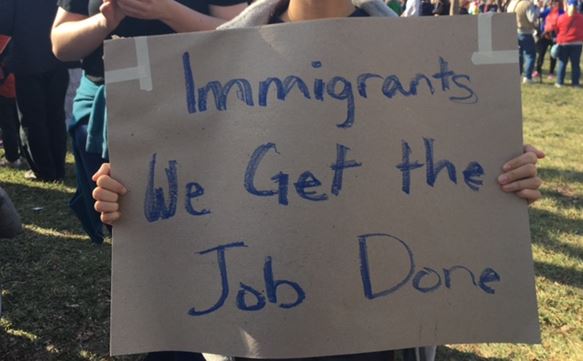 Immigrants
We Get the
Job Done